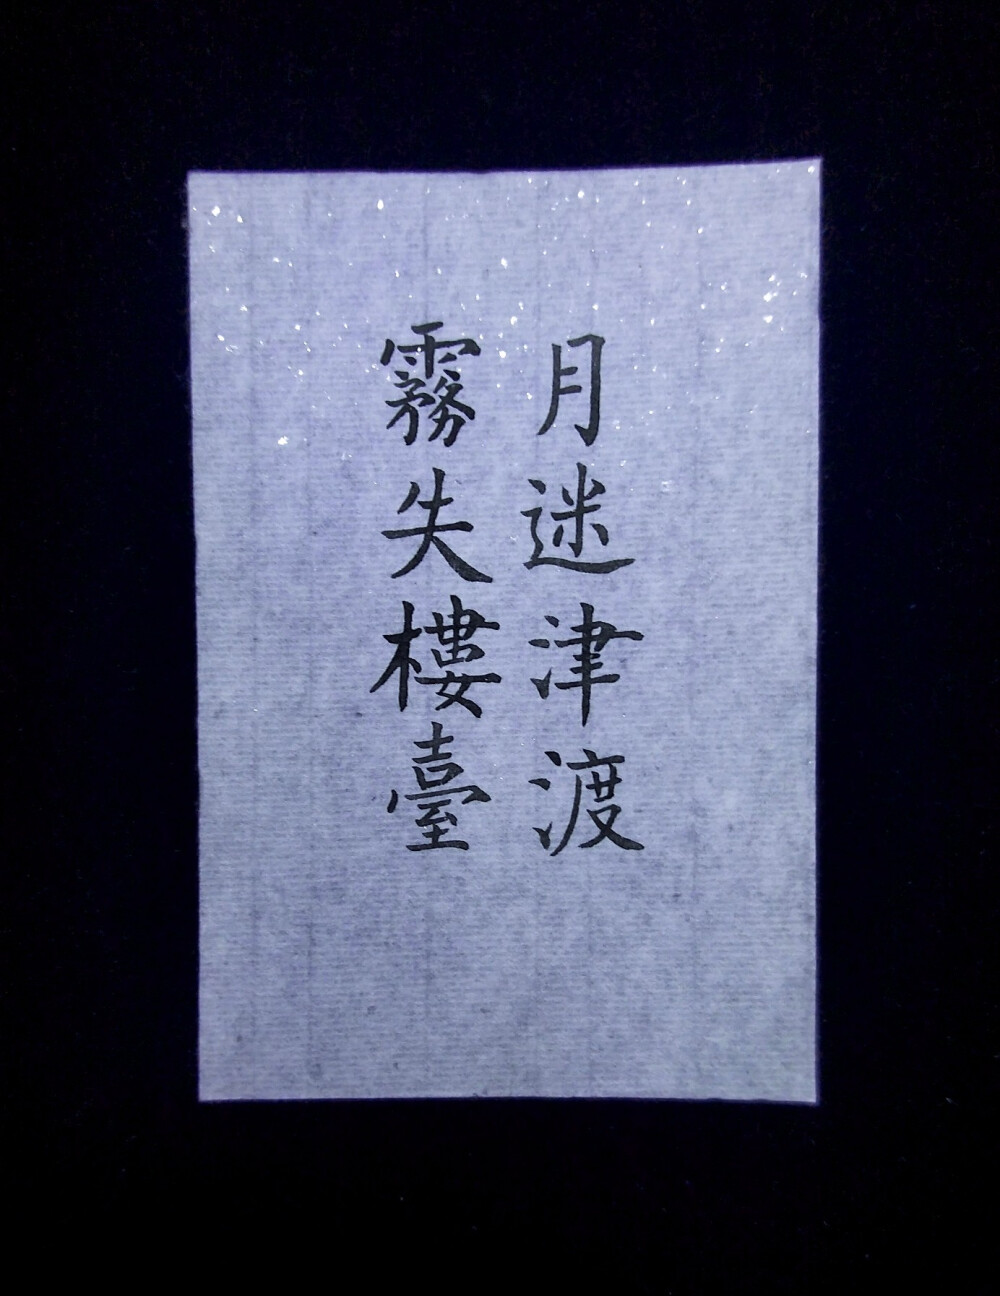 月迷津渡
霧失樓臺